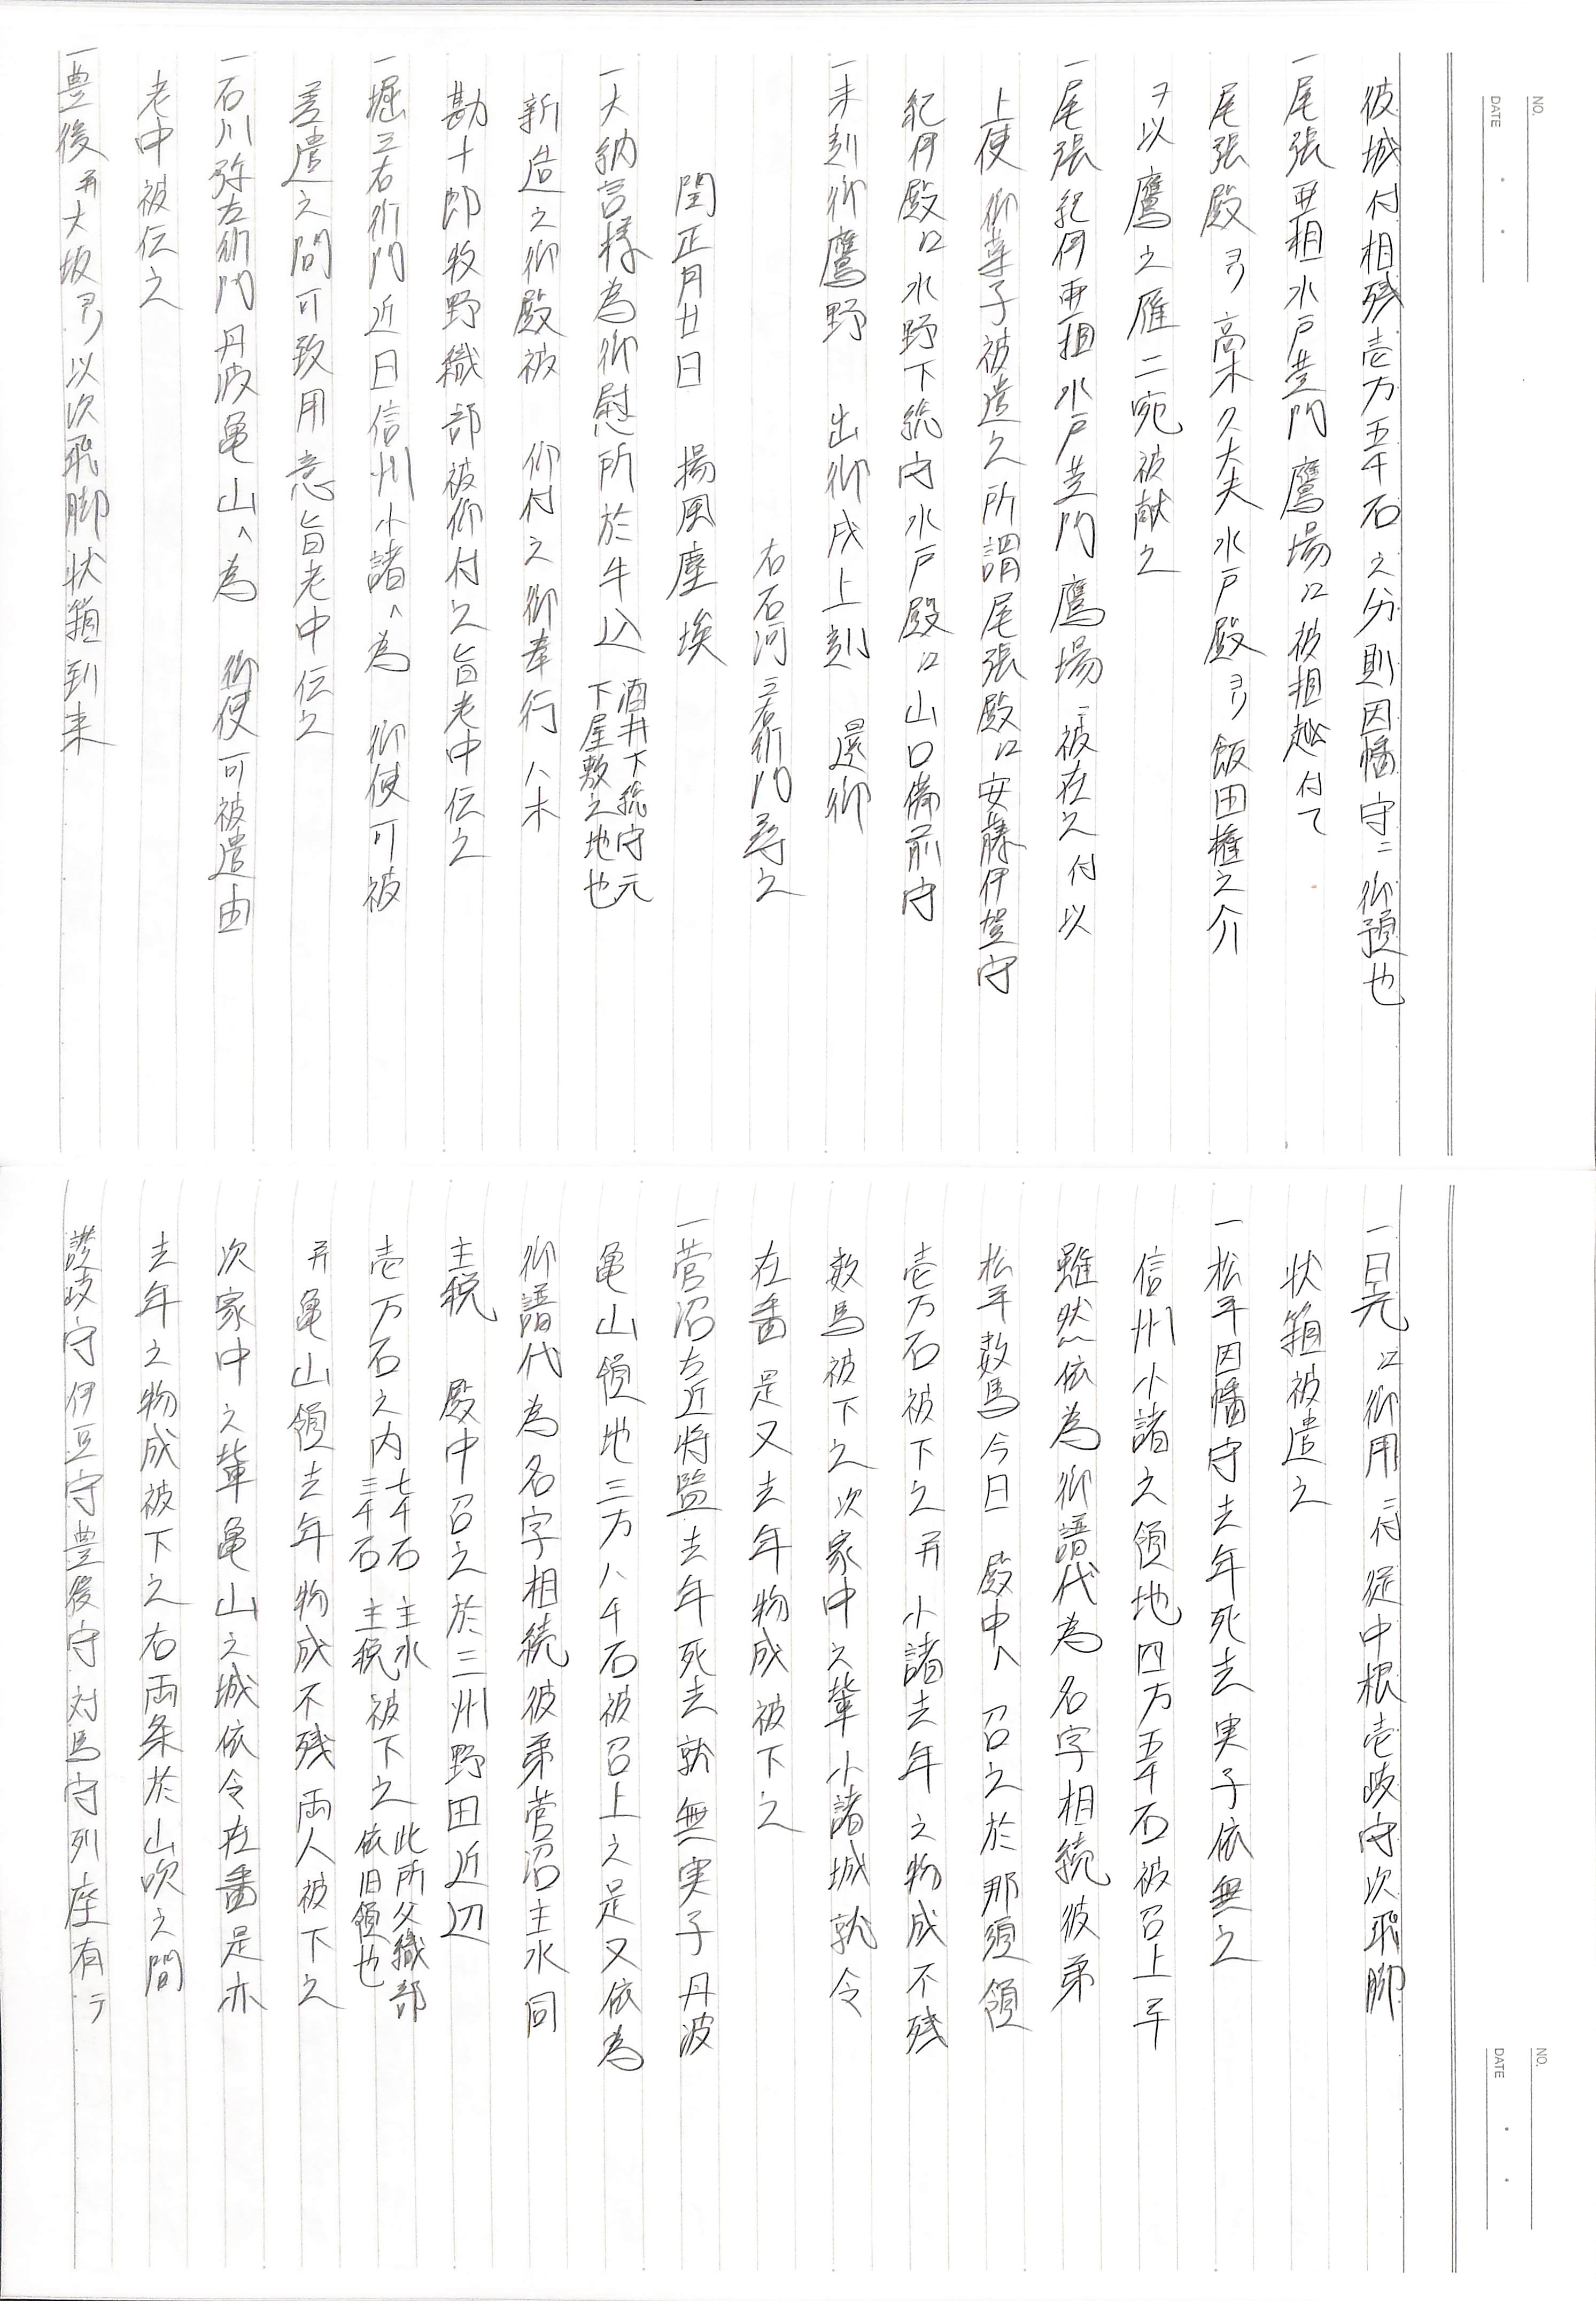 NO.
DATE
彼城付相残壱万五千石之分則因幡守ニ御預也
一尾張亜相水戸黄門鷹場江被相越付て
尾張殿ゟ高木久大夫水戸殿ゟ飯田権之介
ヲ以鷹之雁二宛被献之
一尾張紀伊亜相水戸黄門鷹場ニ被在之付以
上使御菓子被遣之所謂尾張殿江安藤伊賀守
紀伊殿江水野下総守水戸殿江山口備前守
一未刻御鷹野 出御戌上刻 還御
右石河三右衛門尋之
閏正月廿日 揚風塵埃
一大納言様為御慰所於牛込 酒井下総守元
下屋敷之地也
新造之御殿被 仰付之御奉行八木
勘十郎牧野織部被仰付之旨老中伝之
一堀三右衛門近日信州小諸へ為 御使可被
差遣之間可致用意旨老中伝之
一石川弥左衛門丹波亀山へ為 御使可被遣由
老中被伝之
一豊後并大坂ゟ以次飛脚状箱到来
NO.
DATE
一日光江御用ニ付従中根壱岐守次飛脚
状箱被遣之
一松平因幡守去年死去実子依無之
信州小諸之領地四万五千石被召上畢
雖然依為御譜代為名字相続彼弟
松平数馬今日 殿中へ召之於那須領
壱万石被下之并小諸去年之物成不残
数馬被下之次家中之輩小諸城就令
在番是又去年物成被下之
一菅沼左近将監去年死去就無実子丹波
亀山領地三万八千石被召上之是又依為
御譜代為名字相続彼弟菅沼主水同
主税 殿中召之於三州野田近辺
壱万石之内 七千石 主水
三千石 主税 被下之 此所父織部
依旧領也
并亀山領去年物成不残両人被下之
次家中之輩亀山之城依令在番是亦
去年之物成被下之右両条於山吹之間
讃岐守伊豆守豊後守対馬守列座有テ